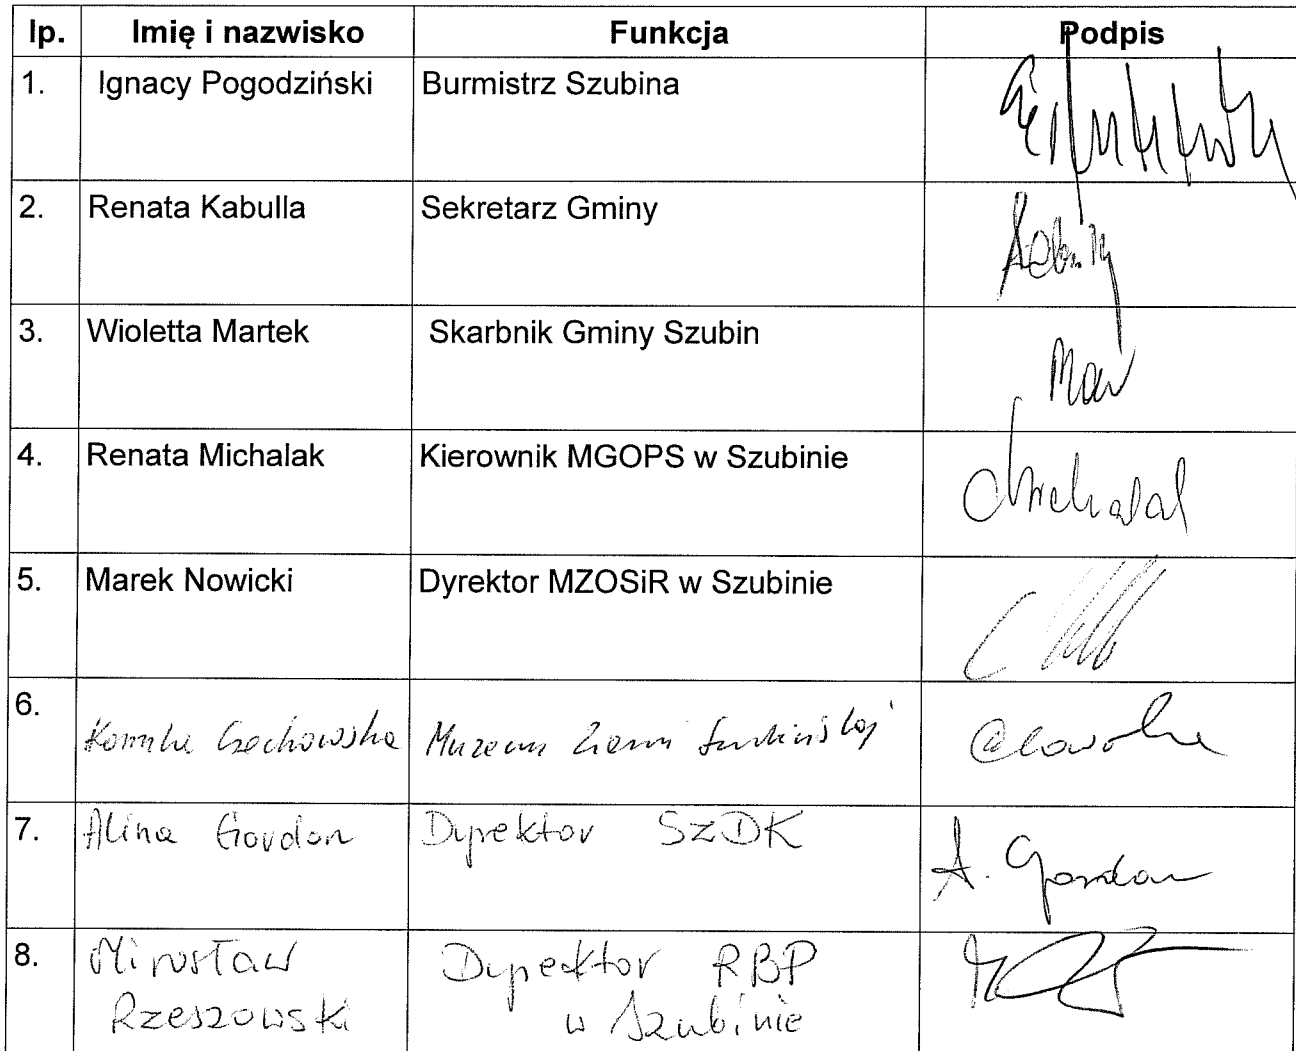 lp. Imię i nazwisko Funkcja Podpis
1. Ignacy Pogodziński Burmistrz Szubina
2. Renata Kabulla Sekretarz Gminy
3. Wioletta Martek Skarbnik Gminy Szubin
4. Renata Michalak Kierownik MGOPS w Szubinie Michalak
5. Marek Nowicki Dyrektor MZOSiR w Szubinie
6. Kamila Czechowska Muzeum Ziemi Szubińskiej
7. Alina Gordon Dyrektor SzDK A. Gordon
8. Mirosław Dyrektor RBP
Rzeszowski w Szubinie